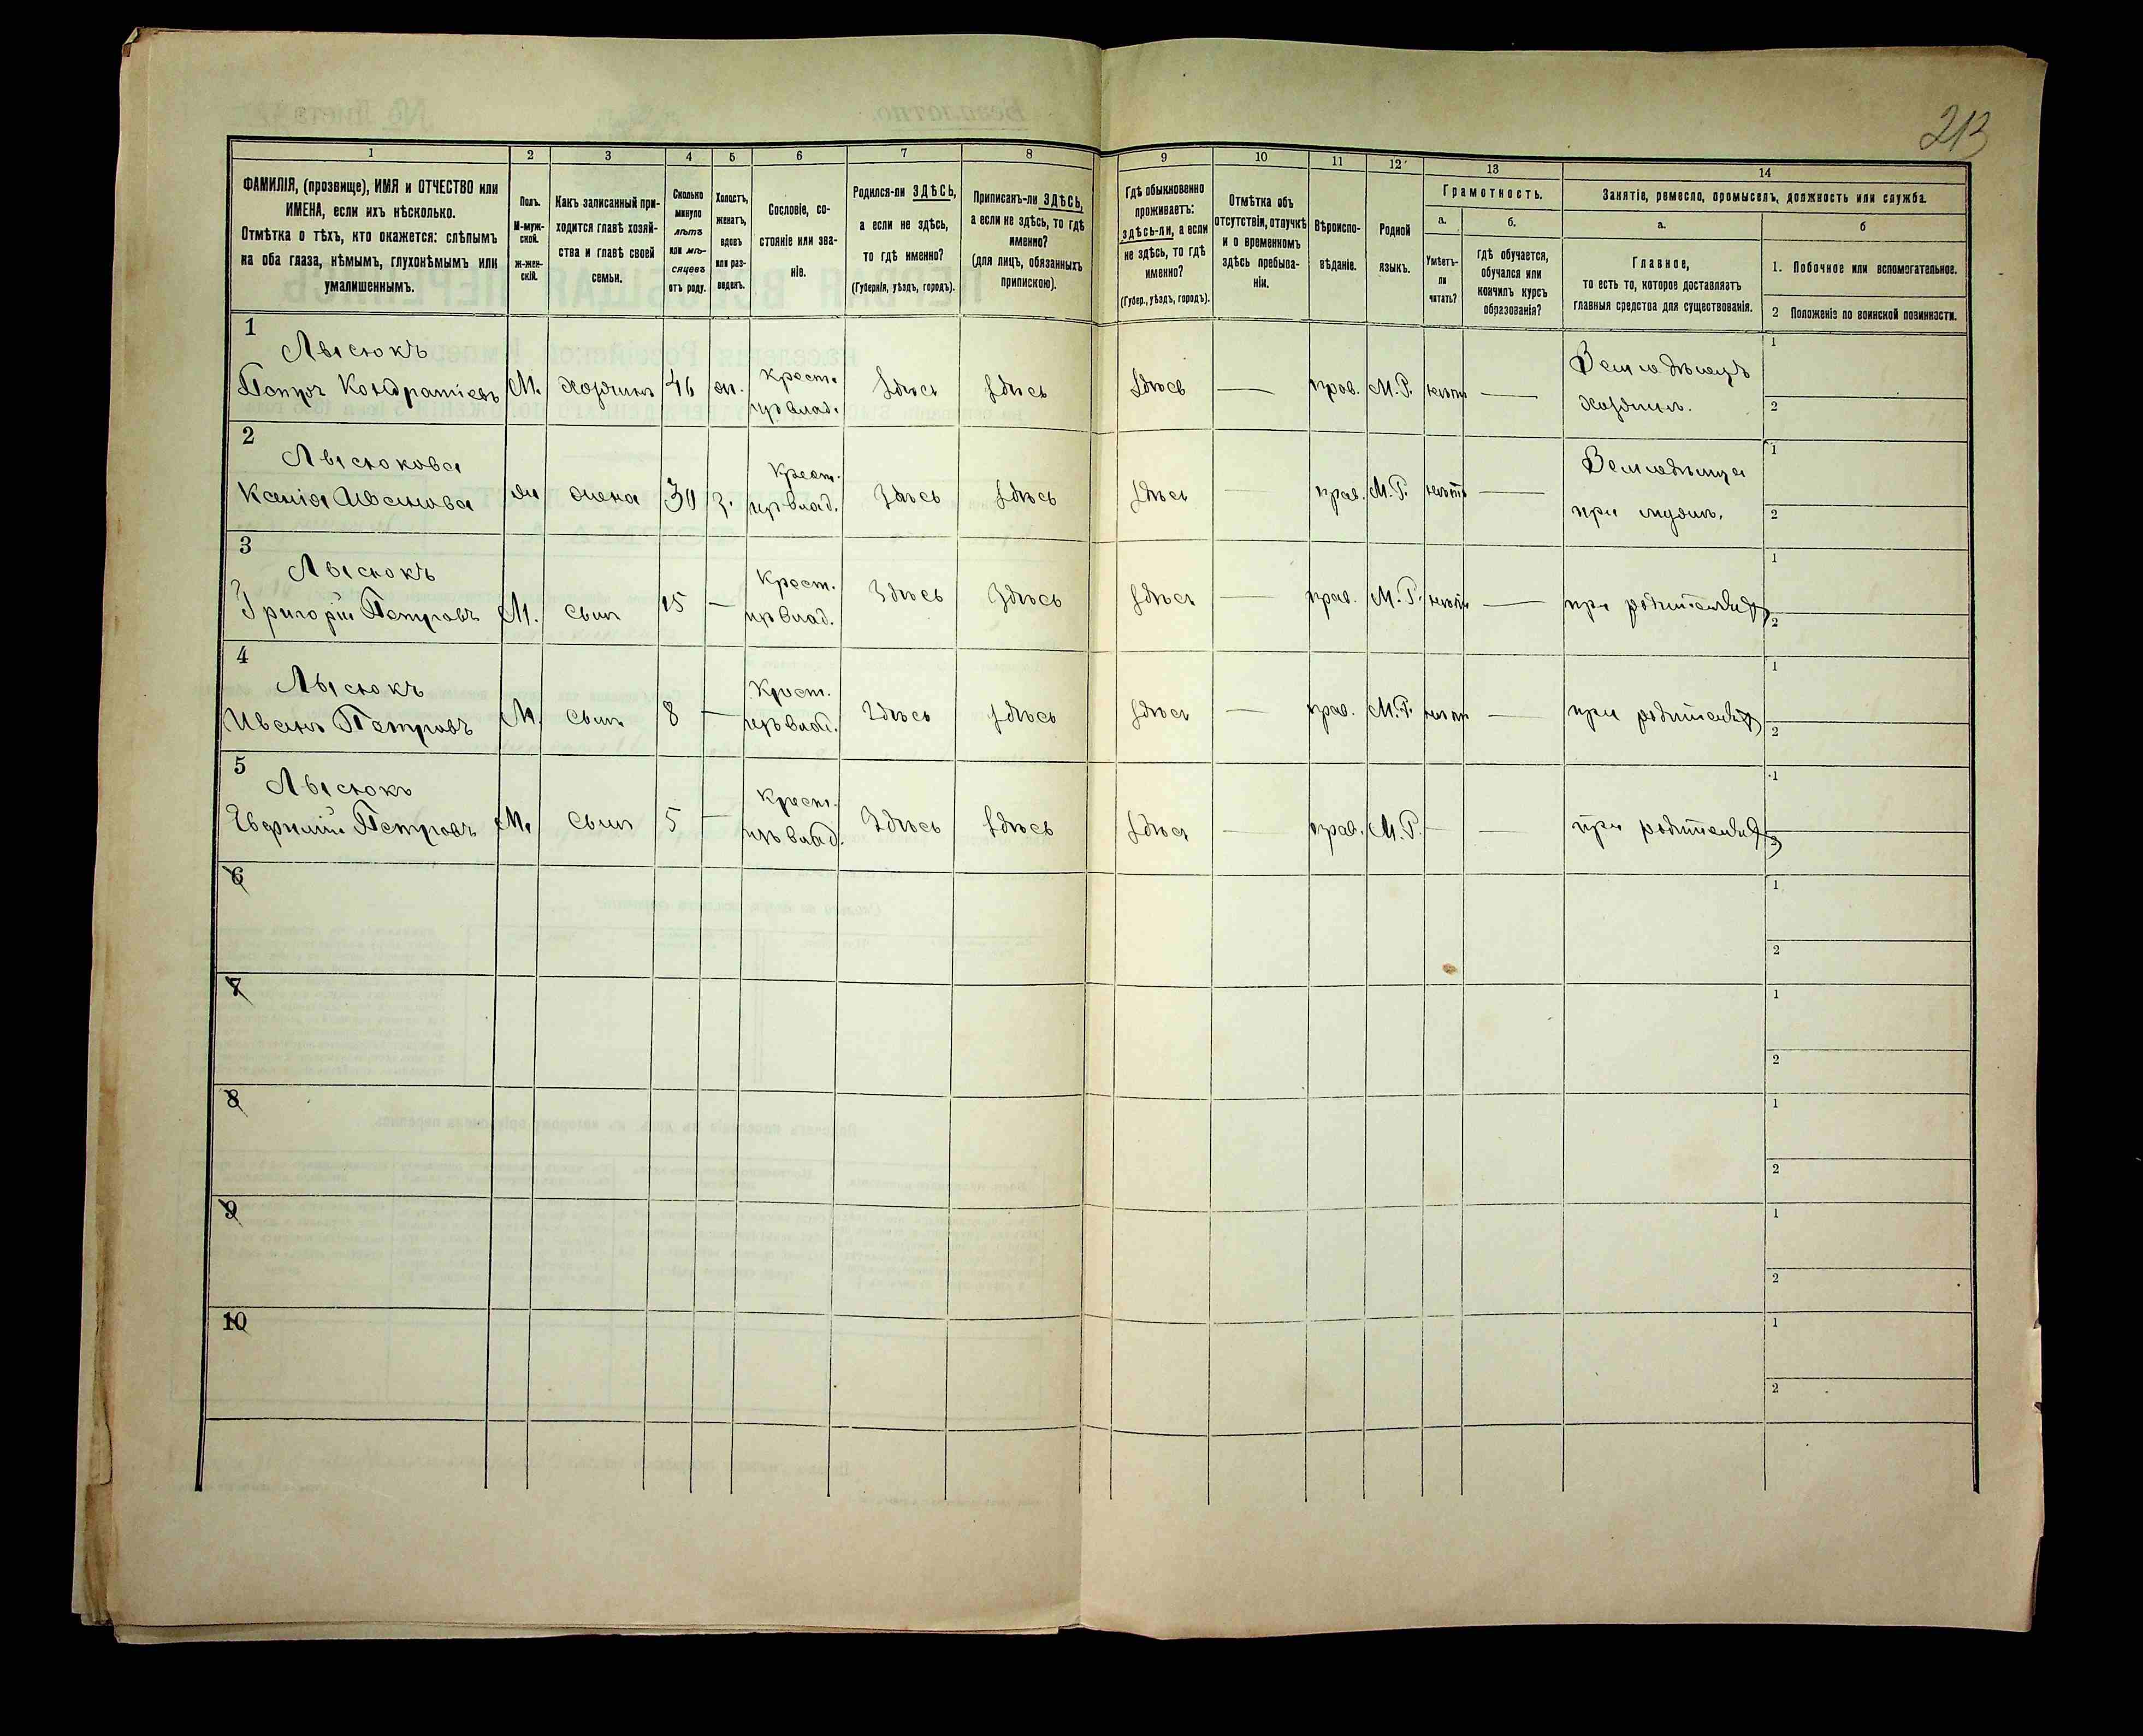 213
1
2
3
4
5
6
7
8
9
10
11
12
13
14
ФАМИЛІЯ, (прозвище), ИМЯ и ОТЧЕСТВО или
ИМЕНА, если ихъ нѣсколько.
Отмѣтка о тѣхъ, кто окажется: слѣпымъ
на оба глаза, нѣмымъ, глухонѣмымъ или
умалишеннымъ.
Полъ.
М-муж-
ской.
ж-жен-
скій.
Какъ записанный при-
ходится главѣ хозяй-
ства и главѣ своей
семьи.
Сколько
минуло
лѣтъ
или мѣ-
сяцевъ
отъ роду.
Холостъ,
женатъ,
вдовъ
или раз-
веденъ.
Сословіе, со-
стояніе или зва-
ніе.
Родился-ли ЗДѢСЬ,
а если не здѣсь,
то гдѣ именно?
(Губернія, уѣздъ, городъ).
Приписанъ-ли ЗДѢСЬ,
а если не здѣсь, то гдѣ
именно?
(для лицъ, обязанныхъ
припискою).
Гдѣ обыкновенно
проживаетъ:
здѣсь-ли, а если
не здѣсь, то гдѣ
именно?
(Губер., уѣздъ, городъ).
Отмѣтка объ
отсутствіи, отлучкѣ
и о временномъ
здѣсь пребыва-
ніи.
Вѣроиспо-
вѣданіе.
Родной
языкъ.
Грамотность.
а.
Умѣетъ-
ли
читать?
б.
Гдѣ обучается,
обучался или
кончилъ курсъ
образованія?
Занятіе, ремесло, промыселъ, должность или служба.
а.
Главное,
то есть то, которое доставляетъ
главныя средства для существованія.
б
1. Побочное или вспомогательное.
2 Положеніе по воинской повинности.
1
Лысюкъ
Петръ Кондратіевъ М. хозяинъ 46 ж. Крест. из влад. Здѣсь Здѣсь Здѣсь — прав. М.Р. нѣтъ — Земледѣлецъ
хозяинъ.
1
2
2
Лысюкова
Ксенія Иванова ж жена 30 з. Крест. из влад. Здѣсь Здѣсь Здѣсь — прав. М.Р. нѣтъ —
при мужѣ.
1
2
3
Лысюкъ
Григорій Петровъ М. сынъ 15 — Крест. из влад. Здѣсь Здѣсь Здѣсь — прав. М.Р. нѣтъ — при родителяхъ
1
2
4
Лысюкъ
Иванъ Петровъ М. сынъ 8 — Крест. из влад. Здѣсь Здѣсь Здѣсь — прав. М.Р. нѣтъ — при родителяхъ
1
2
5
Лысюкъ
Евфимій Петровъ М. сынъ 5 — Крест. из влад. Здѣсь Здѣсь Здѣсь — прав. М.Р. — — при родителяхъ
1
2
6
1
2
7
1
2
8
1
2
9
1
2
10
1
2